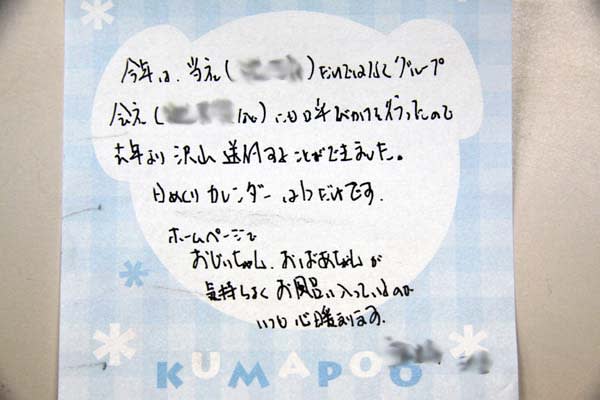 今年は、当社()だけではなくグループ
会社()にも呼びかけを行ったので
去年より沢山送付することができました。
日めくりカレンダーは1つだけです。
ホームページで
おじいちゃん、おばあちゃんが
気持ちよくお風呂に入っているのが
いつも心暖まります。
KUMAPOO